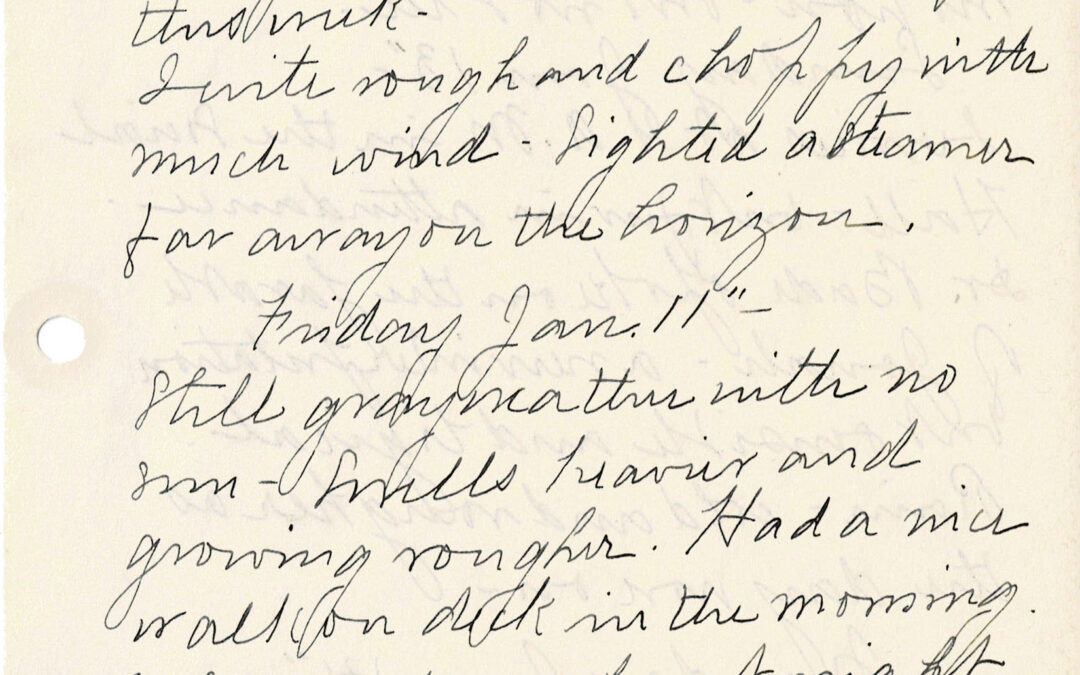 this week-
Quite rough and choppy with
much wind - Sighted a steamer
far away on the horizon.
Friday Jan. 11"-
Still gray weather with no
sun - Swells heavier and
growing rougher. Had a nice
walk on deck in the morning.
night